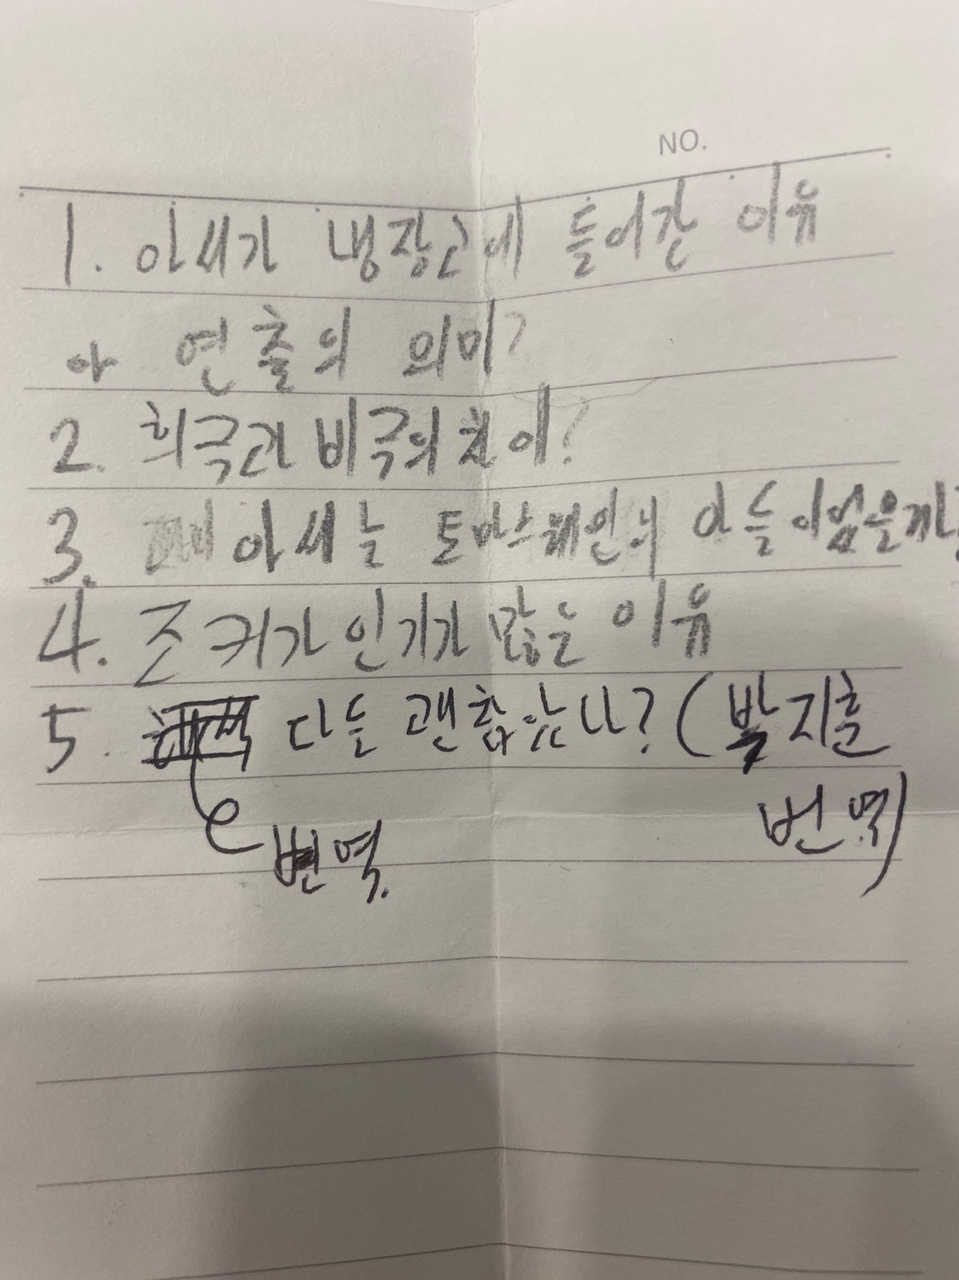 NO.
1. 아서가 냉장고에 들어간 이유
와 연출의 의미?
2. 희극과 비극의 차이?
3. 아서는 토마스웨인의 아들이었을까?
4. 조커가 인기가 많은 이유
5. 다들 괜찮았나? (박지훈
번역)
번역.